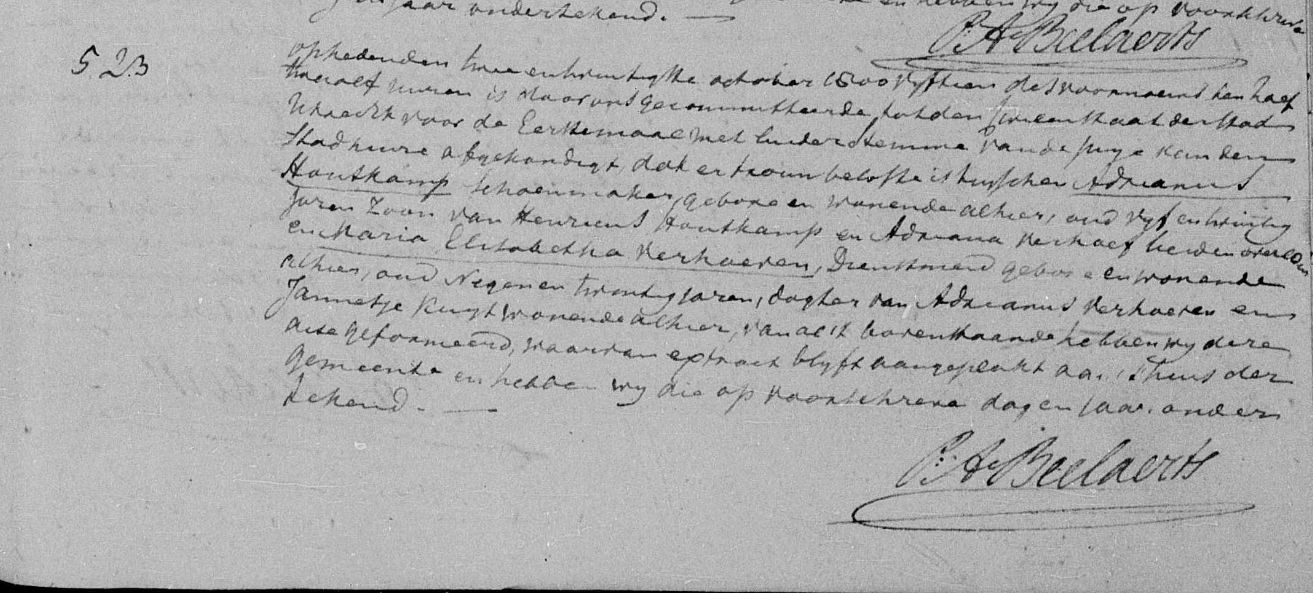 jaar ondertekend. — en hebben wy die op voorschreve
P. A. Beelaerts
523
Opheden den twee en twintigste october 1800 vyftien des voormiends ten half
twaalf uuren is door ons gecommitteerde tot den Burgerlyken staat der stad
Utrecht voor de Eerstemaal met luider stemme van de puye van den
Stadhuise afgekondigt, dat er trouw belofte is tusschen Adrianus
Houtkamp Schoenmaker, gebore en wonende alhier, oud vyf en twintig
Jaren Zoon van Henricus Houtkamp en Adriana Verhoef beiden overleden
en Maria Elisabetha Verhoeven, Dienstmeid gebore en wonende
alhier, oud Negen en twintig jaren, dogter van Adrianus Verhoeven en
Jannetje Kuyt wonende alhier, van al it bovenstaande hebben wy deze
acte geformeerd, waarvan extract blyft aangeplakt aan 't huis der
gemeente en hebben wy die op voorschreve dag en jaar onder
tekend. —
P. A. Beelaerts